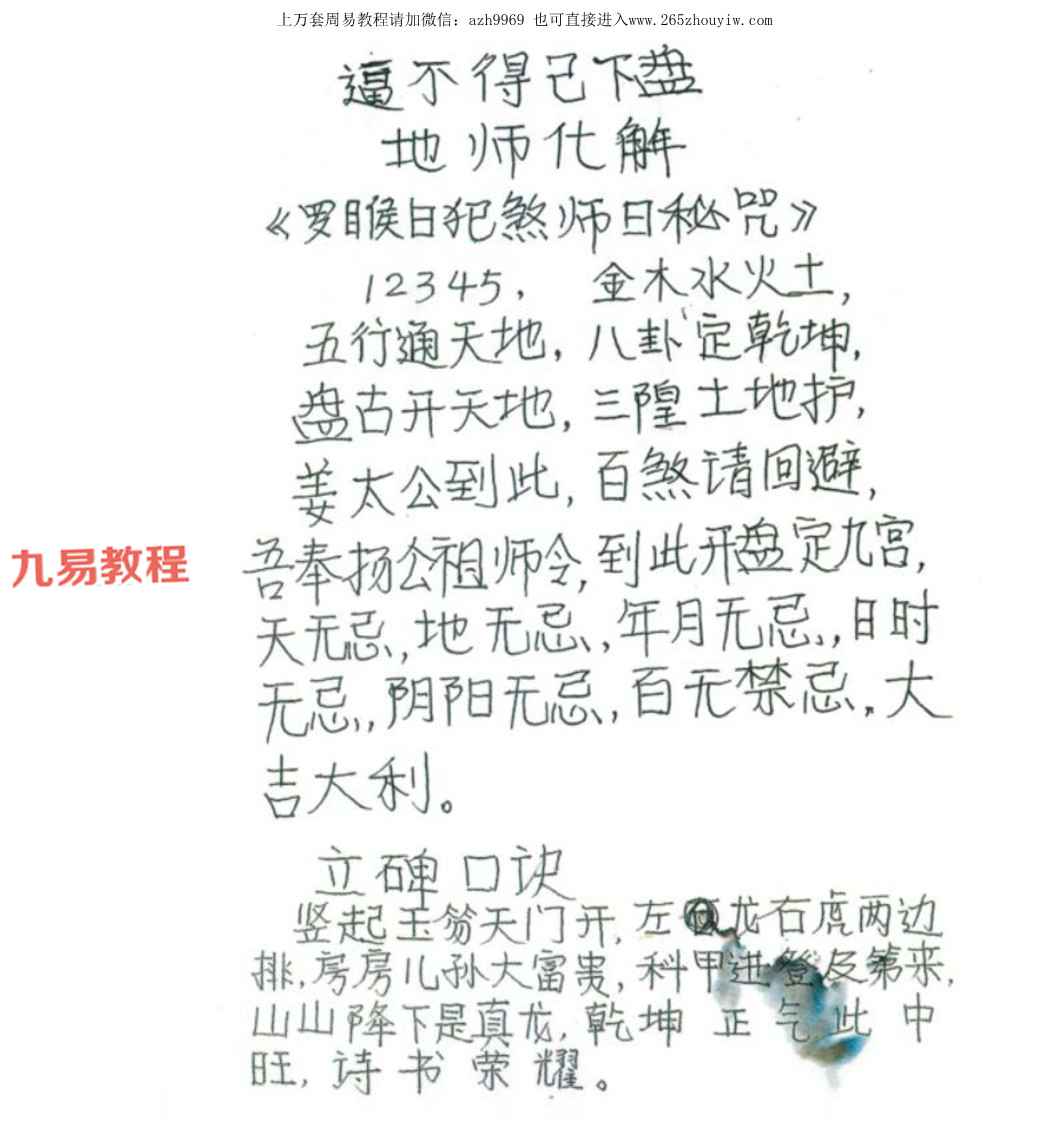 上万套周易教程请加微信：azh9969 也可直接进入www.265zhouyiw.com
逼不得己下盘
地师化解
《罗睺日犯煞师日秘咒》
12345， 金木水火土，
五行通天地，八卦定乾坤，
盘古开天地，三隍土地护，
姜太公到此，百煞请回避，
九易教程
吾奉扬公祖师令，到此开盘定九宫，
天无忌，地无忌，年月无忌，日时
无忌，阴阳无忌，百无禁忌。大
吉大利。
立碑口诀
竖起玉笏天门开，左龙右虎两边
排，房房儿孙大富贵，科甲进登及第来，
山山降下是真龙，乾坤正气此中
旺，诗书荣耀。